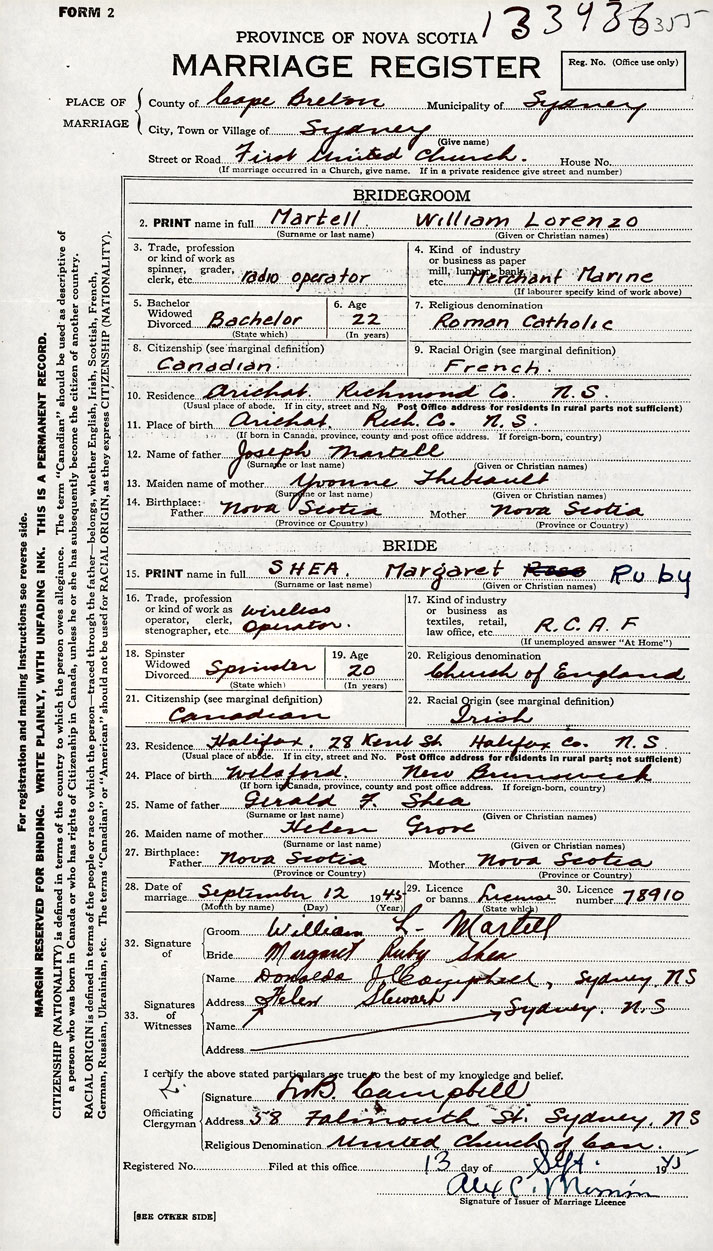 FORM 2
133436 355
PROVINCE OF NOVA SCOTIA
MARRIAGE REGISTER
Reg. No. (Office use only)
PLACE OF MARRIAGE
County of Cape Breton Municipality of Sydney
City, Town or Village of Sydney
(Give name)
Street or Road First United Church. House No.
(If marriage occurred in a Church, give name. If in a private residence give street and number)
BRIDEGROOM
2. PRINT name in full Martell William Lorenzo
(Surname or last name) (Given or Christian names)
3. Trade, profession or kind of work as spinner, grader, clerk, etc. radio operator
4. Kind of industry or business as paper mill, lumber, bank, etc. Merchant Marine
(If labourer specify kind of work above)
5. Bachelor Widowed Divorced Bachelor
(State which)
6. Age 22
(In years)
7. Religious denomination
Roman Catholic
8. Citizenship (see marginal definition)
Canadian
9. Racial Origin (see marginal definition)
French.
10. Residence Arichat Richmond Co. N.S.
(Usual place of abode. If in city, street and No. Post Office address for residents in rural parts not sufficient)
11. Place of birth Arichat Rich. Co. N.S.
(If born in Canada, province, county and post office address. If foreign-born, country)
12. Name of father Joseph Martell
(Surname or last name) (Given or Christian names)
13. Maiden name of mother Yvonne Thibeault
(Surname or last name) (Given or Christian names)
14. Birthplace: Father Nova Scotia Mother Nova Scotia
(Province or Country) (Province or Country)
BRIDE
15. PRINT name in full SHEA. Margaret Ruby
(Surname or last name) (Given or Christian names)
16. Trade, profession or kind of work as operator, clerk, stenographer, etc. Wireless Operator.
17. Kind of industry or business as textiles, retail, law office, etc. R.C.A.F
(If unemployed answer "At Home")
18. Spinster Widowed Divorced Spinster
(State which)
19. Age 20
(In years)
20. Religious denomination
Church of England
21. Citizenship (see marginal definition)
Canadian
22. Racial Origin (see marginal definition)
Irish
23. Residence Halifax. 28 Kent St. Halifax Co. N.S
(Usual place of abode. If in city, street and No. Post Office address for residents in rural parts not sufficient)
24. Place of birth Welsford. New Brunswick
(If born in Canada, province, county and post office address. If foreign-born, country)
25. Name of father Gerald F. Shea
(Surname or last name) (Given or Christian names)
26. Maiden name of mother Helen Grove
(Surname or last name) (Given or Christian names)
27. Birthplace: Father Nova Scotia Mother Nova Scotia
(Province or Country) (Province or Country)
28. Date of marriage September 12 1945
(Month by name) (Day) (Year)
29. Licence or banns License
(State which)
30. Licence number 78910
32. Signature of
Groom William L. Martell
Bride Margaret Ruby Shea
33. Signatures of Witnesses
Name Donalda J Campbell, Sydney, NS
Address Helen Stewart
Name Sydney. N.S
Address
I certify the above stated particulars are true to the best of my knowledge and belief.
Officiating Clergyman
Signature Campbell
Address 58 Falmouth St. Sydney. NS
Religious Denomination United Church of Can.
Registered No. Filed at this office 13 day of Sept. 1945
Alex C.
Signature of Issuer of Marriage Licence
[SEE OTHER SIDE]
For registration and mailing instructions see reverse side.
MARGIN RESERVED FOR BINDING. WRITE PLAINLY, WITH UNFADING INK. THIS IS A PERMANENT RECORD.
CITIZENSHIP (NATIONALITY) is defined in terms of the country to which the person owes allegiance. The term "Canadian" should be used as descriptive of
a person who was born in Canada or who has rights of Citizenship in Canada, unless he or she has subsequently become the citizen of another country.
RACIAL ORIGIN is defined in terms of the people or race to which the person—traced through the father—belongs, whether English, Irish, Scottish, French,
German, Russian, Ukrainian, etc. The terms "Canadian" or "American" should not be used for RACIAL ORIGIN, as they express CITIZENSHIP (NATIONALITY).